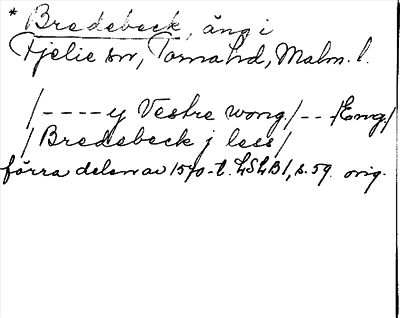 * Bredebeck, äng i
Fjelie sn, Torna hd, Malm. l.
/----y Vestre wong/--/Emg/
/Bredebeck j less/
förra delen av 1570-t. LSLB 1, s. 59. orig.